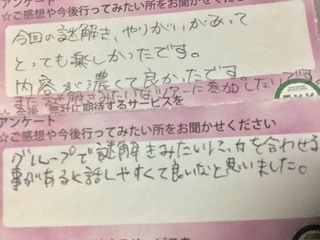 アンケート
☆ご感想や今後行ってみたい所をお聞かせください
今回の謎解き、やりがいがあって
とっても楽しかったです。
内容が濃くて良かったです。
また謎解きみたいなツアーに参加したいです。
☆今後、弊社に期待するサービスを
アンケート
☆ご感想や今後行ってみたい所をお聞かせください
グループで謎解きみたいに、力を合わせる
事があると話しやすくて良いなと思いました。